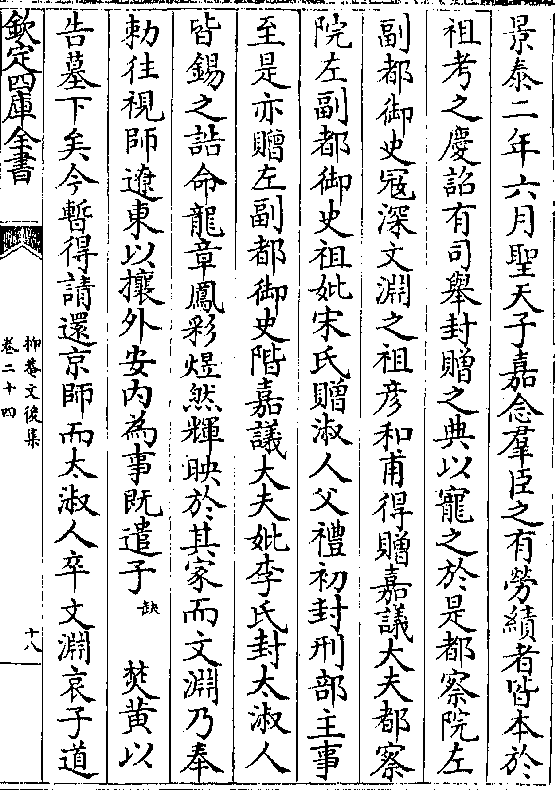 景泰二年六月聖天子嘉念羣臣之有勞績者皆本於
祖考之慶詔有司舉封贈之典以寵之於是都察院左
副都御史冦深文淵之祖彦和甫得贈嘉議大夫都察
院左副都御史祖妣宋氏贈淑人父禮初封刑部主事
至是亦贈左副都御史階嘉議大夫妣李氏封太淑人
皆錫之誥命龍章鳳彩煜然輝映於其家而文淵乃奉
勅往視師遼東以攘外安内為事既遣子缺焚黄以
告墓下矣今暫得請還京師而太淑人卒文淵哀子道
欽定四庫全書
抑菴文後集
卷二十四
十八